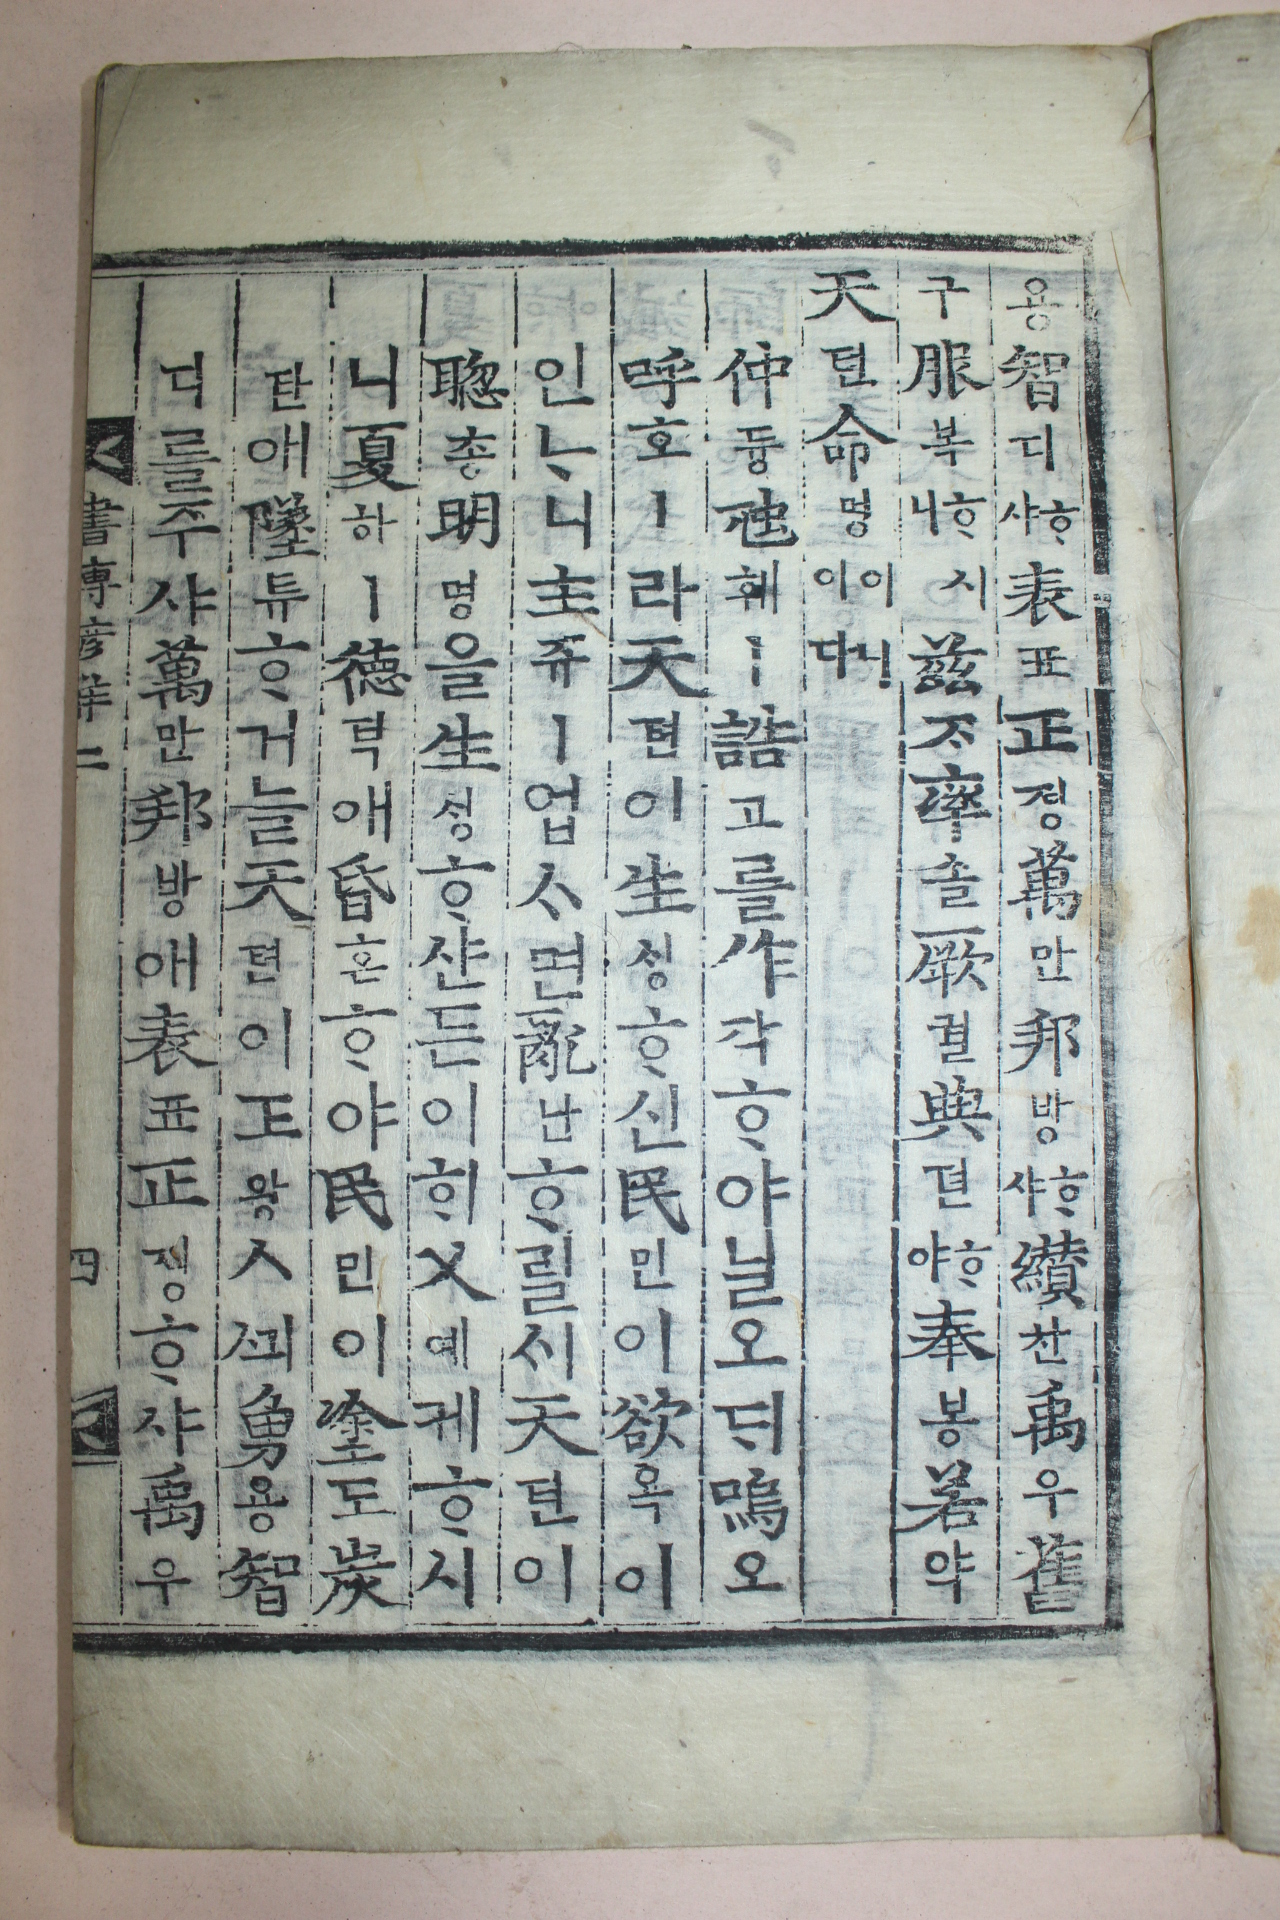 용智디ᄒᆞ샤表표正졍萬만邦방ᄒᆞ샤纘찬禹우舊
구服복ᄒᆞ시니兹ᄌᆞ率솔厥궐典뎐ᄒᆞ야奉봉若약
天텬命명이니이다
仲듕虺훼ㅣ誥고를作작ᄒᆞ야닐오ᄃᆡ嗚오
呼호ㅣ라天텬이生ᄉᆡᆼᄒᆞ신民민이欲욕이
인ᄂᆞ니主쥬ㅣ업ᄉᆞ면亂난ᄒᆞ릴ᄉᆡ天텬이
聰총明명을生ᄉᆡᆼᄒᆞ샨든이ᄒᆡ乂예케ᄒᆞ시
니夏하ㅣ德덕애昏혼ᄒᆞ야民민이塗도炭
탄애墜튜ᄒᆞ거늘天텬이王왕ㅅᄭᅴ勇용智
디를주샤萬만邦방애表표正졍ᄒᆞ샤禹우
書傳諺觧二 四